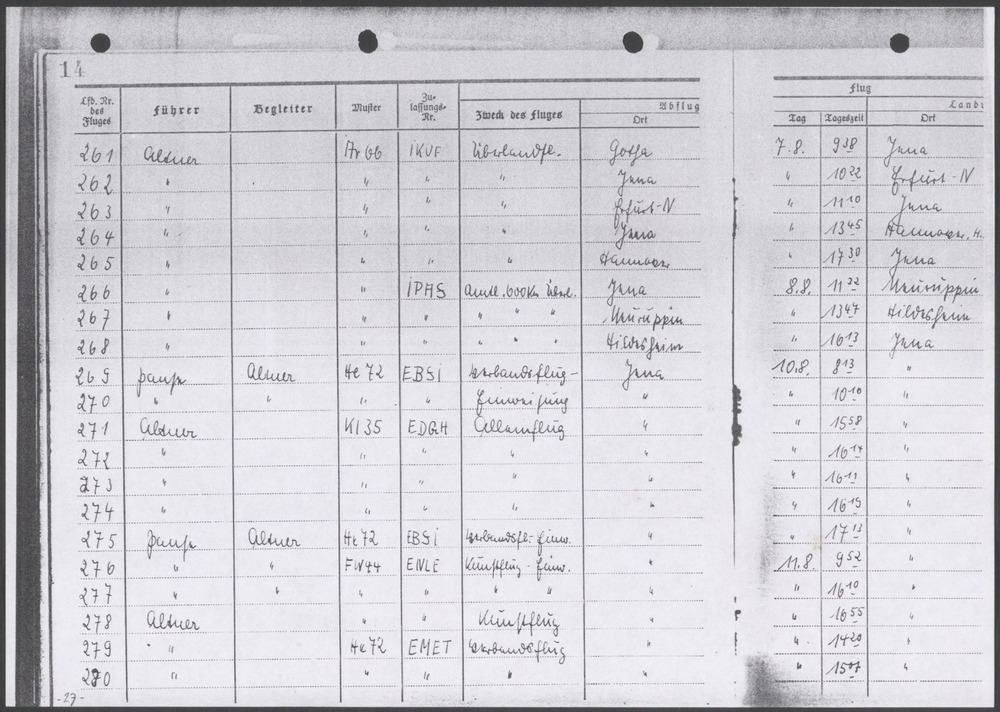 14
Lfd. Nr. des Fluges Führer Begleiter Muster Zulassungs-Nr. Zweck des Fluges Abflug Ort Flug Tag Tageszeit Ort
261 Altner Ar 66 IKUF Überlandfl. Gotha 7.8. 9 38 Jena
262 " " " " Jena " 10 22 Erfurt-N
263 " " " " Erfurt-N " 11 10 Jena
264 " " " " Jena " 13 45 Hannover, H.
265 " " " " Hannover " 17 30 Jena
266 " " IPHS Amtl. 600Km Überl. Jena 8.8. 11 22 Neuruppin
267 " " " " " " Neuruppin " 13 47 Hildesheim
268 " " " " " " Hildesheim " 16 13 Jena
269 Altner He 72 EBSI Verbandsflug- Jena 10.8. 8 13 "
270 " " " " Einweisung " " 10 10 "
271 Altner Kl 35 EDGH Alleinflug " " 15 58 "
272 " " " " " " "
273 " " " " " " "
274 " " " " " " 16 19 "
275 Altner He 72 EBSI Verbandsfl.-Einw. " " "
276 " " FW44 ENLE Kunstflug-Einw. " 11.8. 9 52 "
277 " " " " " " " " 16 10 "
278 Altner " " Kunstflug " " 16 55 "
279 " He 72 EMET Verbandsflug " " 14 20 "
280 " " " " " " "
- 27 -